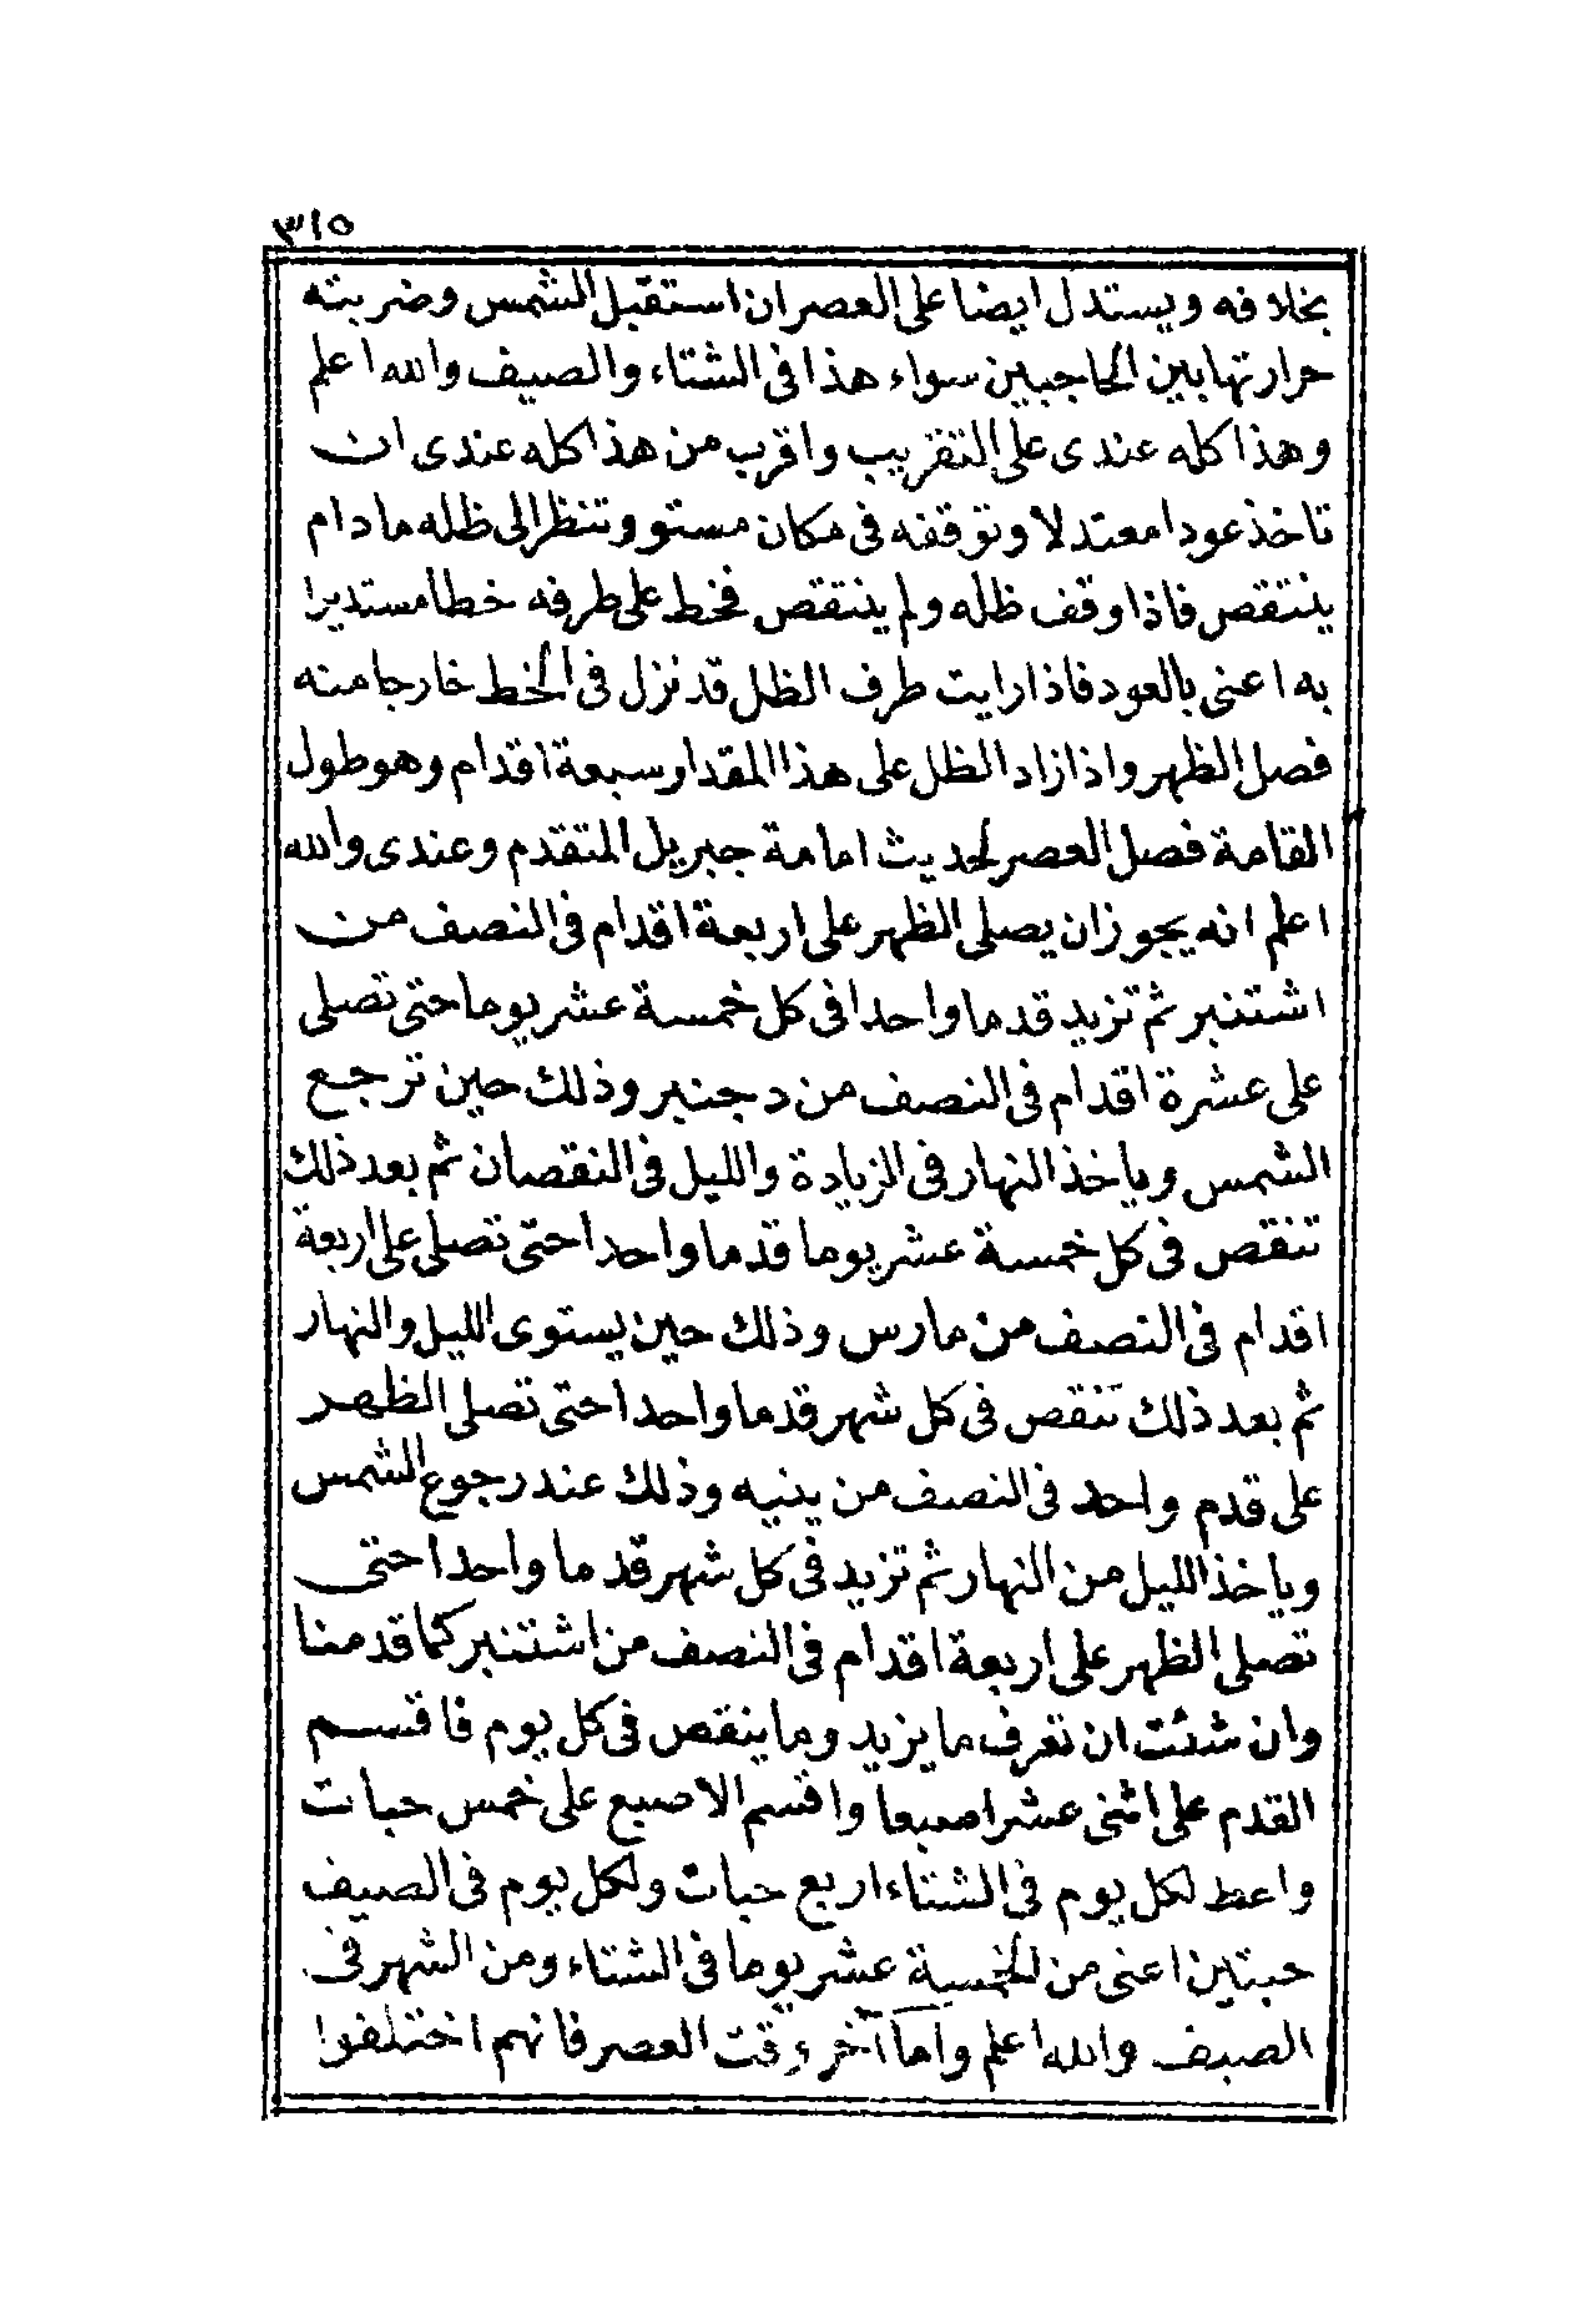 ٣١٥
بخلافه ويستدل ايضا على العصر ان استقبل الشمس وضربته
حرارتها بين الحاجبين سواء هذا فى الشتاء والصيف والله اعلم
وهذا كله عندى على التقريب واقرب من هذا كله عندى ان
تاخذ عودا معتدلا وتوقفه فى مكان مستو وتنظر الى ظله ما دام
ينتقص فاذا وقف ظله ولم ينتقص فخط على طرفه خطا مستديرا
به اعنى بالعود فاذا رايت طرف الظل قد نزل فى الخط خارجا منه
فصل الظهر واذا زاد الظل على هذا المقدار سبعة اقدام وهو طول
القامة فصل العصر لحديث امامة جبريل المتقدم وعندى والله
اعلم انه يجوز ان يصلى الظهر على اربعة اقدام فى النصف من
اشتنبر ثم تزيد قدما واحدا فى كل خمسة عشر يوما حتى تصلى
على عشرة اقدام فى النصف من دجنبر وذلك حين ترجع
الشمس وياخذ النهار فى الزيادة والليل فى النقصان ثم بعد ذلك
تنقص فى كل خمسة عشر يوما قدما واحدا حتى تصلى على اربعة
اقدام فى النصف من مارس وذلك حين يستوى الليل والنهار
ثم بعد ذلك تنقص فى كل شهر قدما واحدا حتى تصلى الظهر
على قدم واحد فى النصف من ينيه وذلك عند رجوع الشمس
وياخذ الليل من النهار ثم تزيد فى كل شهر قدما واحدا حتى
تصلى الظهر على اربعة اقدام فى النصف من اشتنبر كما قدمنا
وان شئت ان تعرف ما يزيد وما ينقص فى كل يوم فاقسم
القدم على اثنى عشر اصبعا واقسم الاصبع على خمس حبات
واعط لكل يوم فى الشتاء اربع حبات ولكل يوم فى الصيف
حبتين اعنى من الخمسة عشر يوما فى الشتاء ومن الشهر فى
الصيف والله اعلم واما آخر وقت العصر فانهم اختلفوا